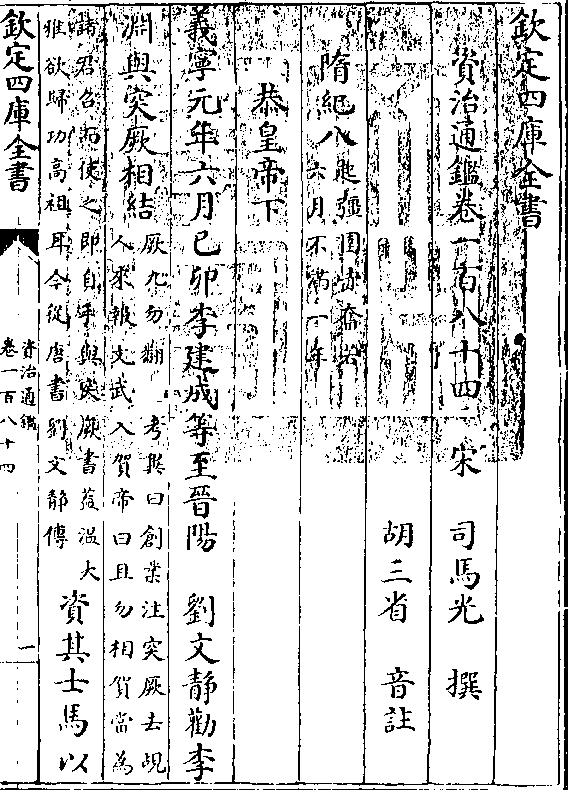 欽定四庫全書
資治通鑑卷一百八十四　宋　司馬光　撰
胡三省　音註
隋紀八起彊圉赤奮若
六月不滿一年
恭皇帝下
義寧元年六月己卯李建成等至晉陽　劉文靜勸李
淵與突厥相結厥九勿翻　考異曰創業注突厥去覘
人來報文武入賀帝曰且勿相賀當為
諸君召而使之即自手與突厥書葢溫大
雅欲歸功高祖耳今從唐書劉文靜傳
資其士馬以
欽定四庫全書
資治通鑑
卷一百八十四
一